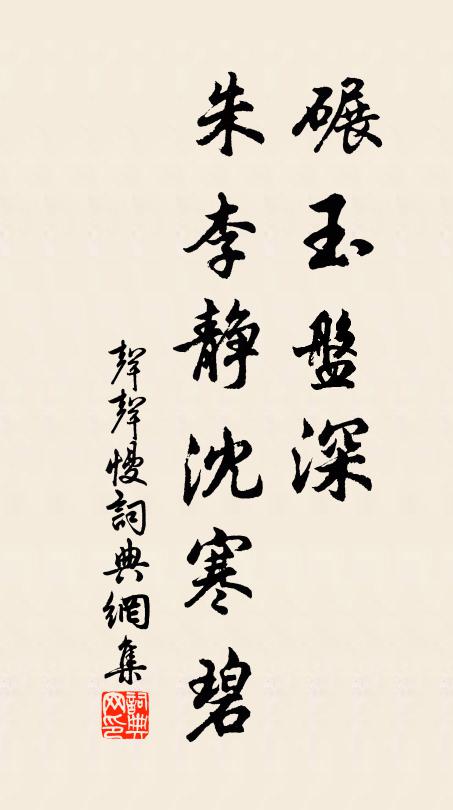 碾玉盤深
朱李静沈寒碧
聲聲慢詞典網集
詞典网印